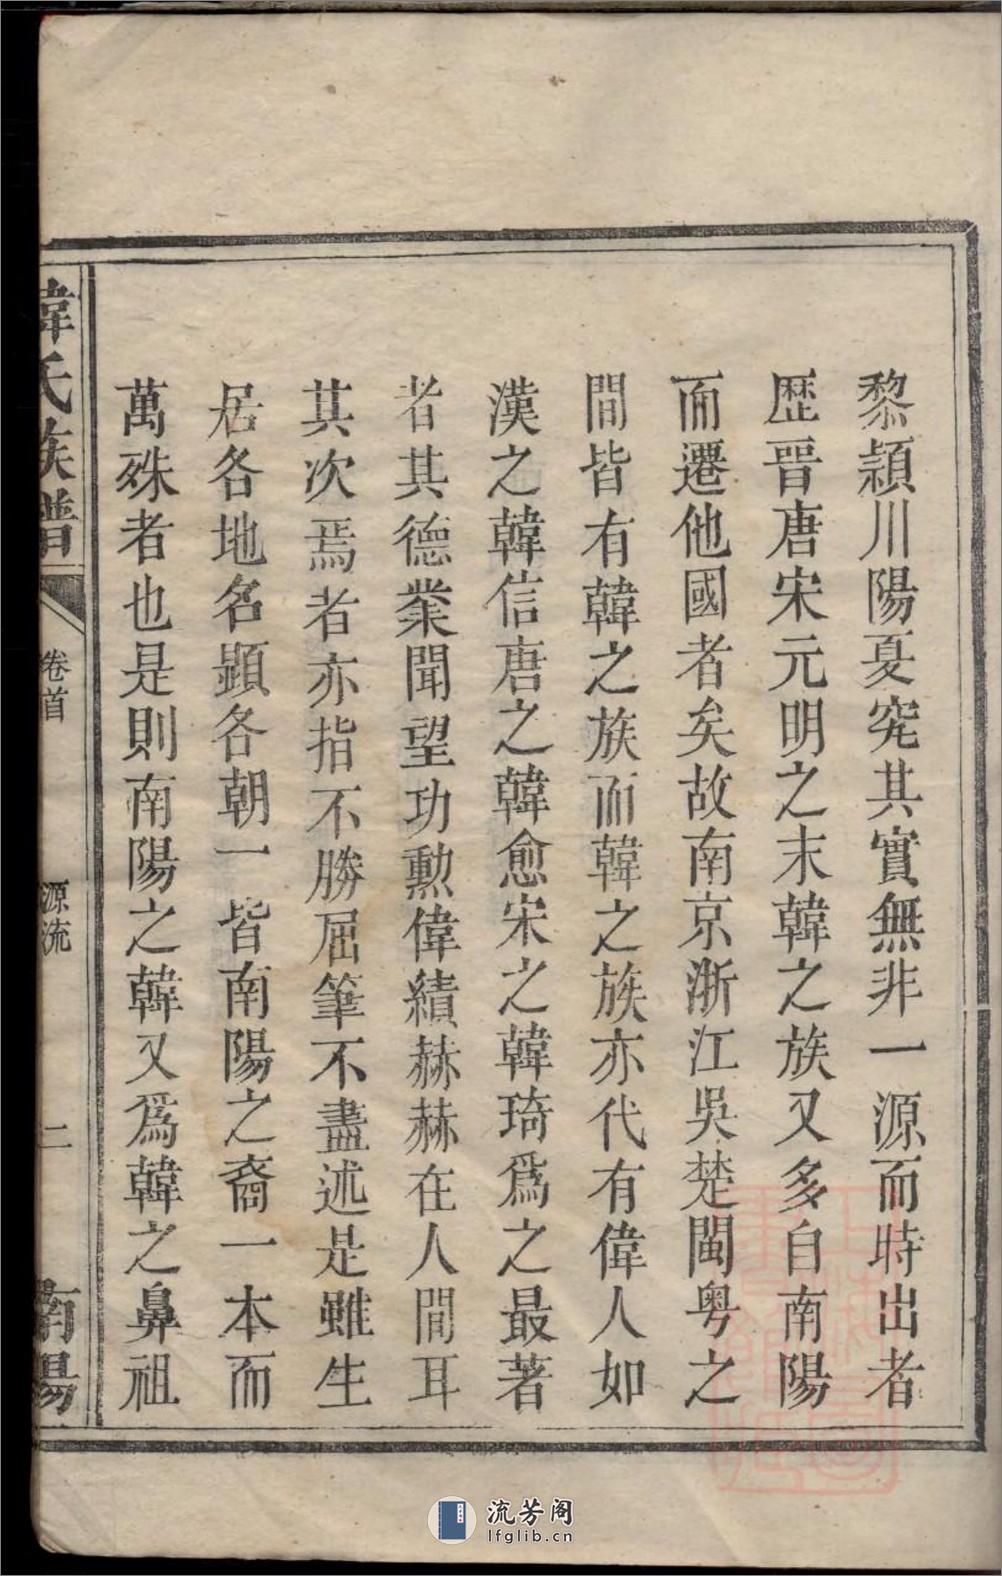 黎潁川陽夏究其實無非一源而時出者
歷晉唐宋元明之末韓之族又多自南陽
而遷他國者矣故南京浙江吳楚閩粵之
間皆有韓之族而韓之族亦代有偉人如
漢之韓信唐之韓愈宋之韓琦爲之最著
者其德業聞望功勲偉績赫赫在人間耳
其次焉者亦指不勝屈筆不盡述是雖生
居各地名顯各朝一皆南陽之裔一本而
萬殊者也是則南陽之韓又爲韓之鼻祖
韓氏族譜
卷首
源流
二
南陽
流芳阁
lfglib.cn